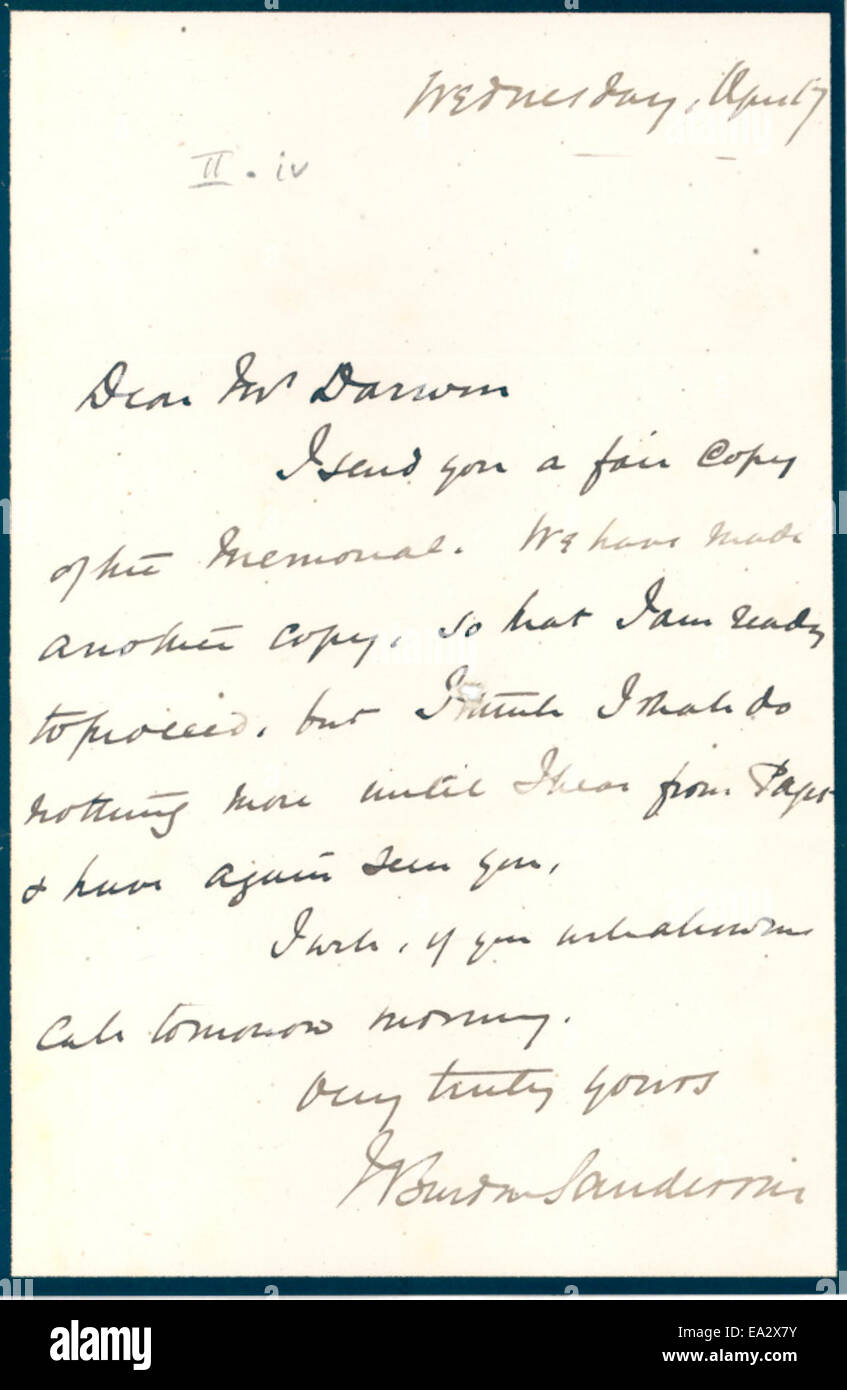 Wednesday, April 7
II. iv
Dear Mr Darwin
I send you a fair Copy
of the Memorial. We have made
another copy, so that I am ready
to proceed, but I think I shall do
nothing more until I hear from Paget
& have again seen you.
I will, if you will allow me
call tomorrow morning.
Very truly yours
J Burdon Sanderson
alamy
Image ID: EA2X7Y
www.alamy.com